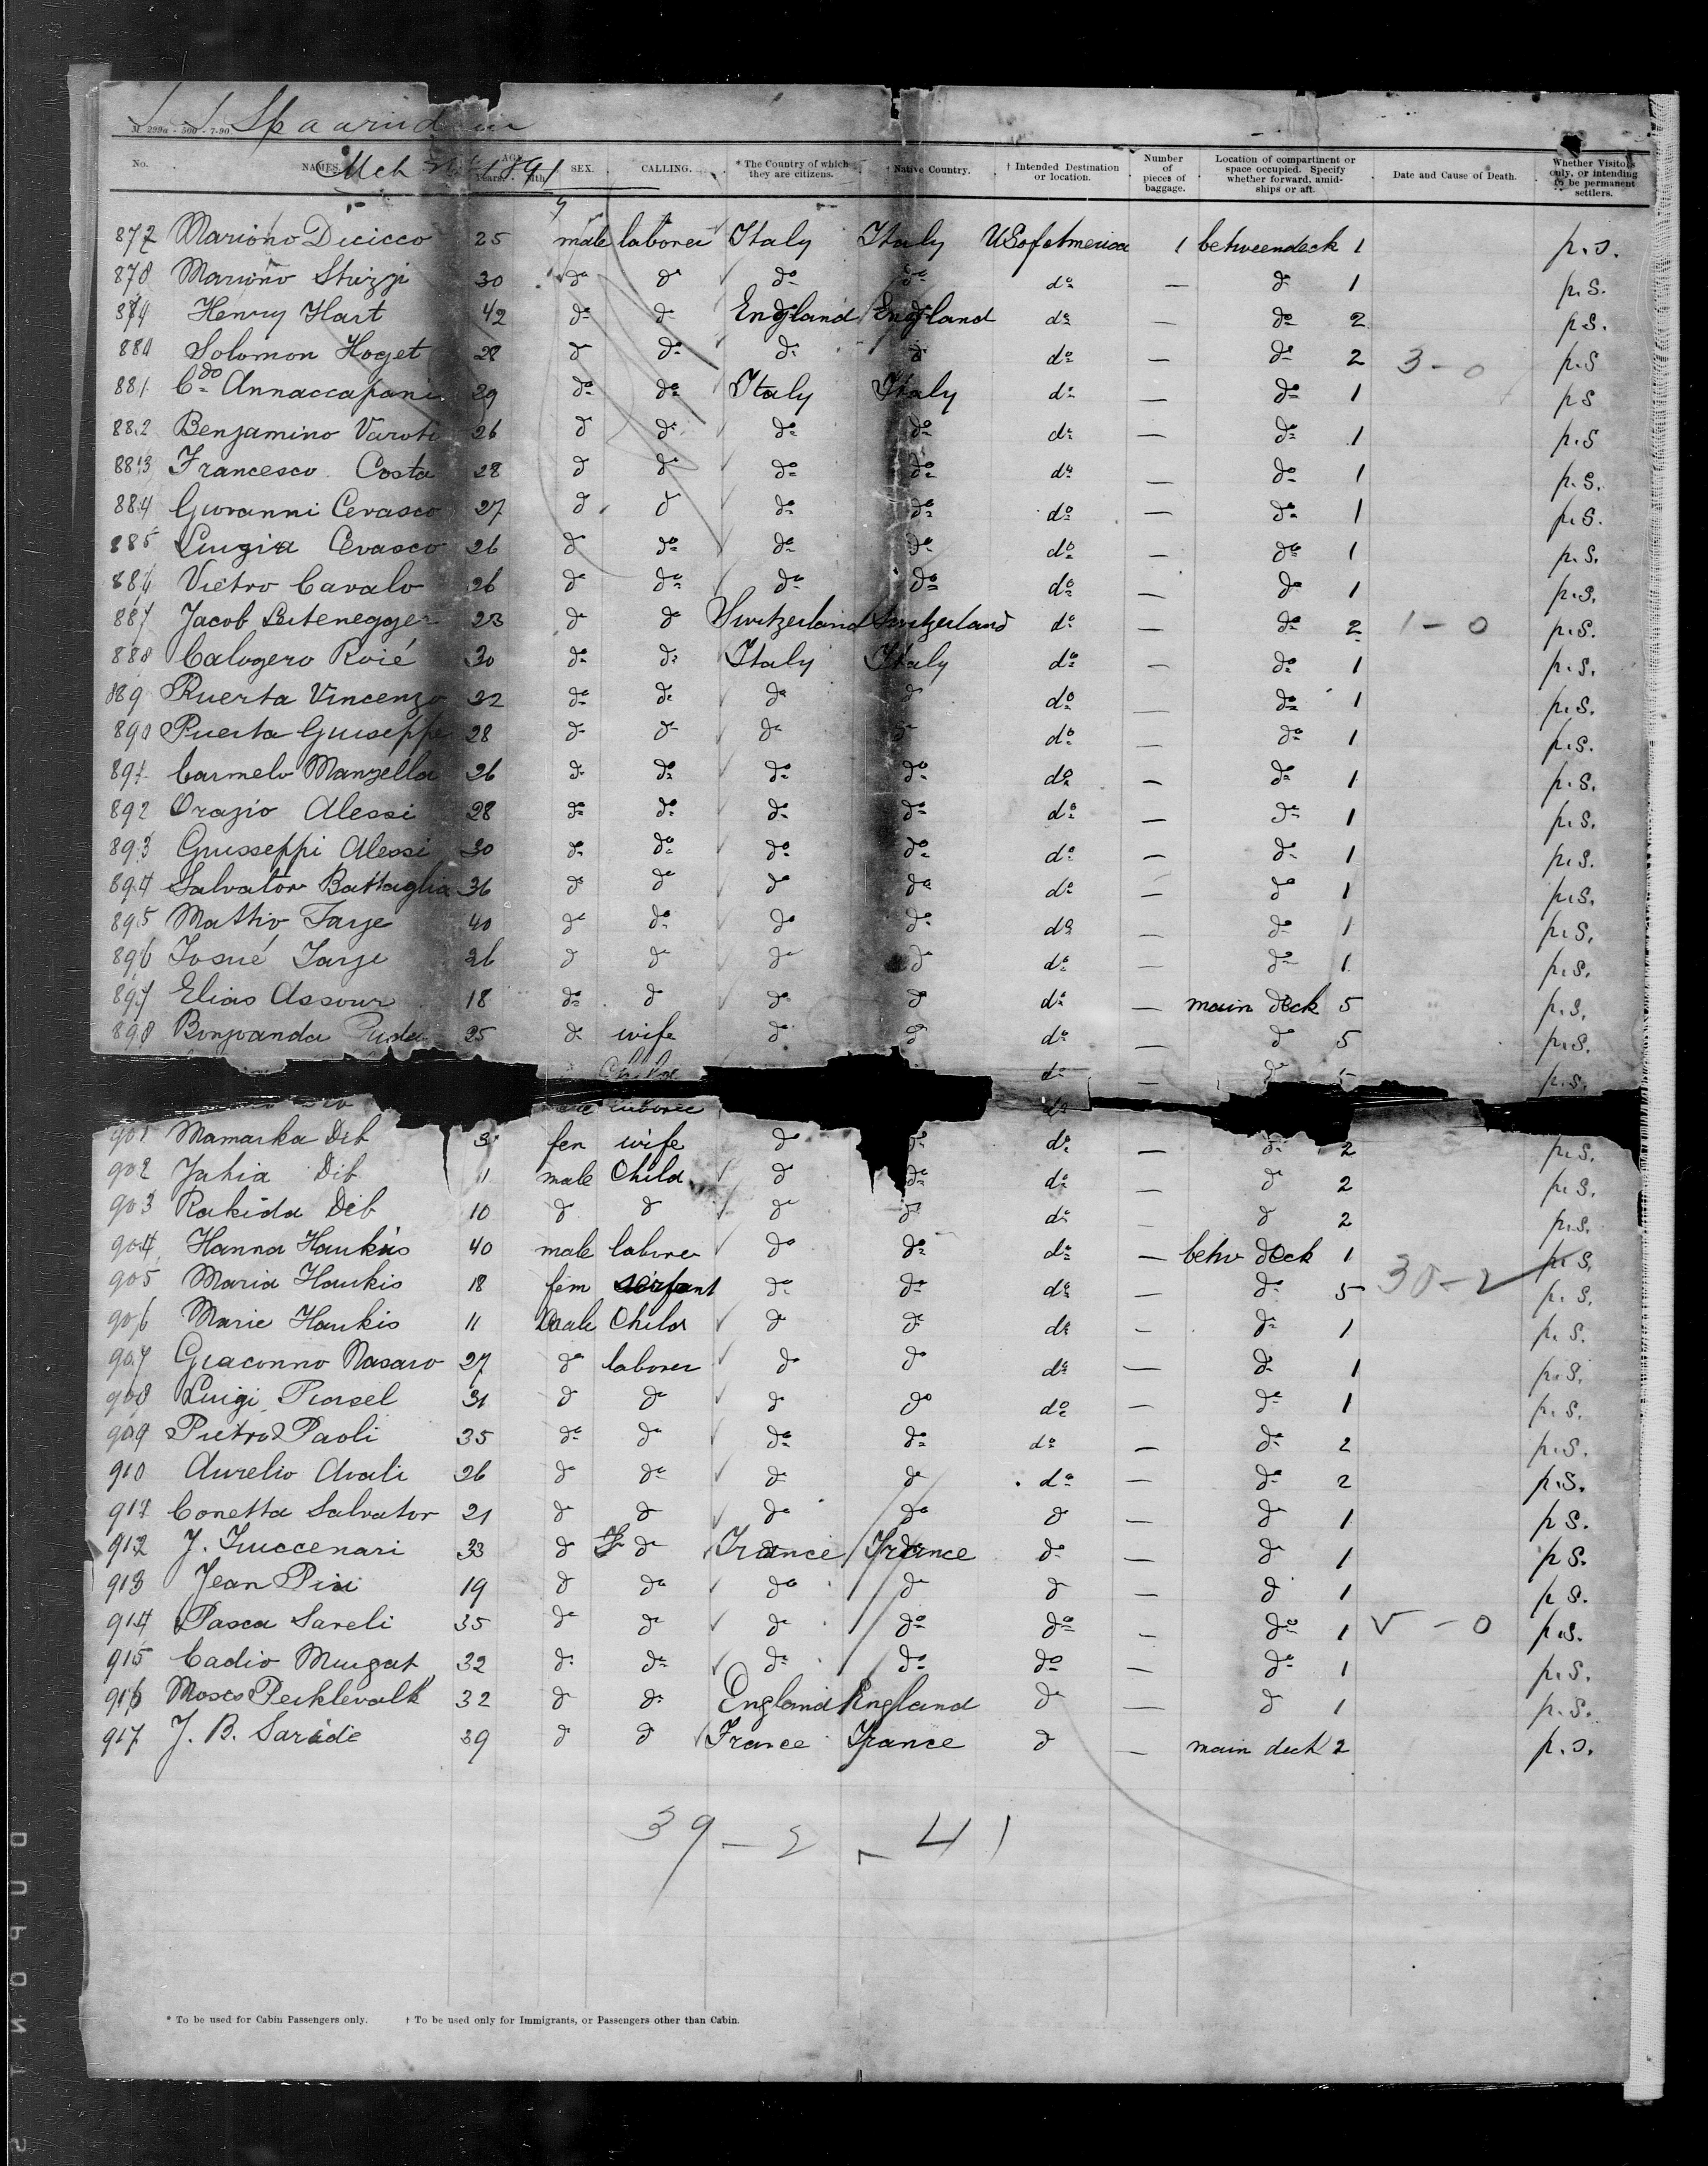 S S Spaarndam
M. 299a - 500 - 7-90.
Mch 1891
No. NAMES. AGE Years. Mth. SEX. CALLING. * The Country of which they are citizens. † Native Country. † Intended Destination or location. Number of pieces of baggage. Location of compartment or space occupied. Specify whether forward, amidships or aft. Date and Cause of Death. Whether Visitors only, or intending to be permanent settlers.
877 Mariano Dicicco 25 male laborer Italy Italy US of America 1 betweendeck 1 p.s.
878 Mariano Stizzi 30 do do do do do — do 1 p.s.
879 Henry Hart 42 do do England England do — do 2 p.s.
880 Solomon Hoget 28 do do do do do — do 2 3-0 p.s
881 Cdo Annaccapani 29 do do Italy Italy do — do 1 p s
882 Benjamino Varoti 26 do do do do do — do 1 p.s
883 Francesco Costa 28 do do do do do — do 1 p.s.
884 Giovanni Cevasco 27 do do do do do — do 1 p.s.
885 Luigia Cevasco 26 do do do do do — do 1 p.s.
886 Vietro Cavalo 26 do do do do do — do 1 p.s.
887 Jacob Lutenegger 23 do do Switzerland Switzerland do — do 2 1-0 p.s.
888 Calogero Roié 30 do do Italy Italy do — do 1 p.s.
889 Puerta Vincenzo 32 do do do do do — do 1 p.s.
890 Puerta Guiseppe 28 do do do do do — do 1 p.s.
891 Carmelo Manzella 26 do do do do do — do 1 p.s.
892 Orazio Alessi 28 do do do do do — do 1 p.s.
893 Giusseppi Alessi 30 do do do do do — do 1 p.s.
894 Salvator Battaglia 36 do do do do do — do 1 p.s.
895 Mattio Tarje 40 do do do do do — do 1 p.s.
896 Josué Tarje 26 do do do do do — do 1 p.s.
897 Elias Assour 18 do do do do do — main deck 5 p.s.
898 Bonjoanda 25 do wife do do do — do 5 p.s.
Child do — do 5 p.s.
laborer do
901 Mamarka Dib 3 fem wife do do do — do 2 p.s.
902 Jahia Dib 11 male Child do do do — do 2 p.s.
903 Rakida Dib 10 do do do do do — do 2 p.s.
904 Hanna Haukis 40 male laborer do do do — betw deck 1 p.s.
905 Maria Haukis 18 fem serfant do do do — do 5 30-2 p.s.
906 Marie Haukis 11 male Child do do do — do 1 p.s.
907 Giaconno Nasaro 27 do laborer do do do — do 1 p.s.
908 Luigi Porsel 31 do do do do do — do 1 p.s.
909 Pietro Paoli 35 do do do do do — do 2 p.s.
910 Aurelio Avali 26 do do do do do — do 2 p.s.
911 Conetta Salvator 21 do do do do do — do 1 p s.
912 J. Iuccenari 33 do do France France do — do 1 p s.
913 Jean Pia 19 do do do do do — do 1 p s.
914 Pasca Sareli 35 do do do do do — do 1 5-0 p.s.
915 Cadio Murgat 32 do do do do do — do 1 p.s.
916 Moses Perklevalk 32 do do England England do — do 1 p.s.
917 J. B. Saride 39 do do France France do — main deck 2 p.s.
39 - 2 - 41
* To be used for Cabin Passengers only. † To be used only for Immigrants, or Passengers other than Cabin.